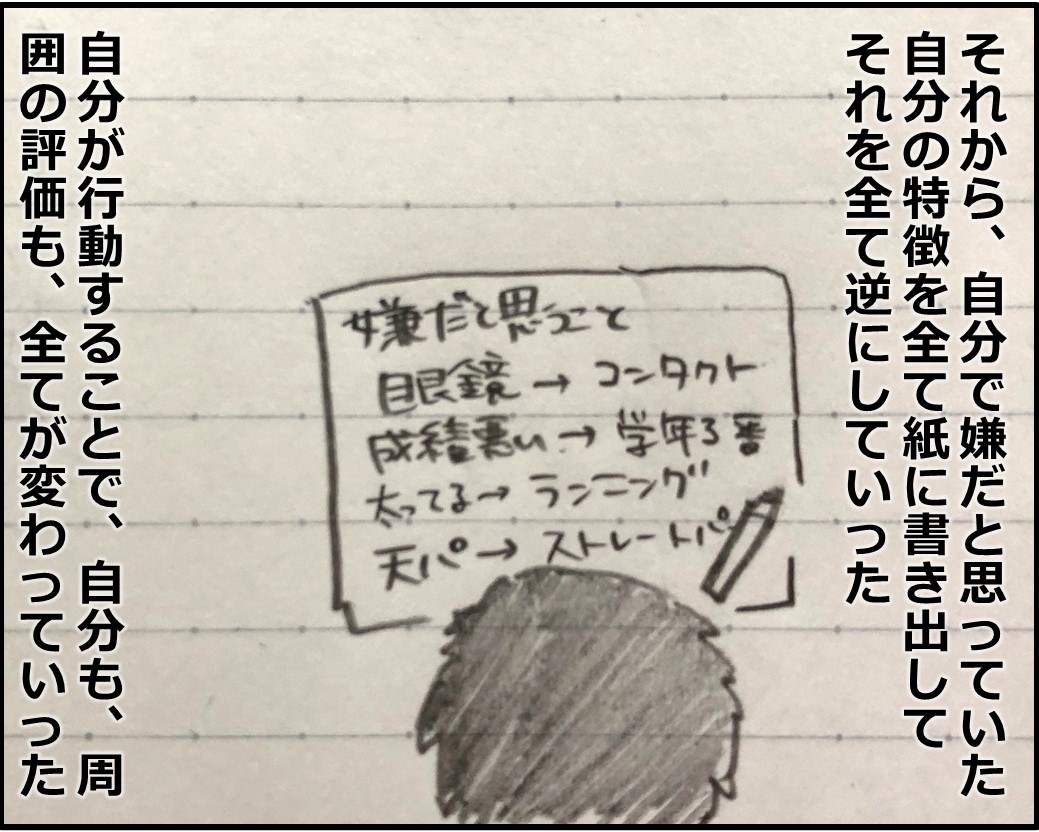 それから、自分で嫌だと思っていた
自分の特徴を全て紙に書き出して
それを全て逆にしていった
嫌だと思うこと
目艮鏡→コンタクト
成績悪い→学年3番
太ってる→ランニング
天パ→ストレートパ
自分が行動することで、自分も、周
囲の評価も、全てが変わっていった